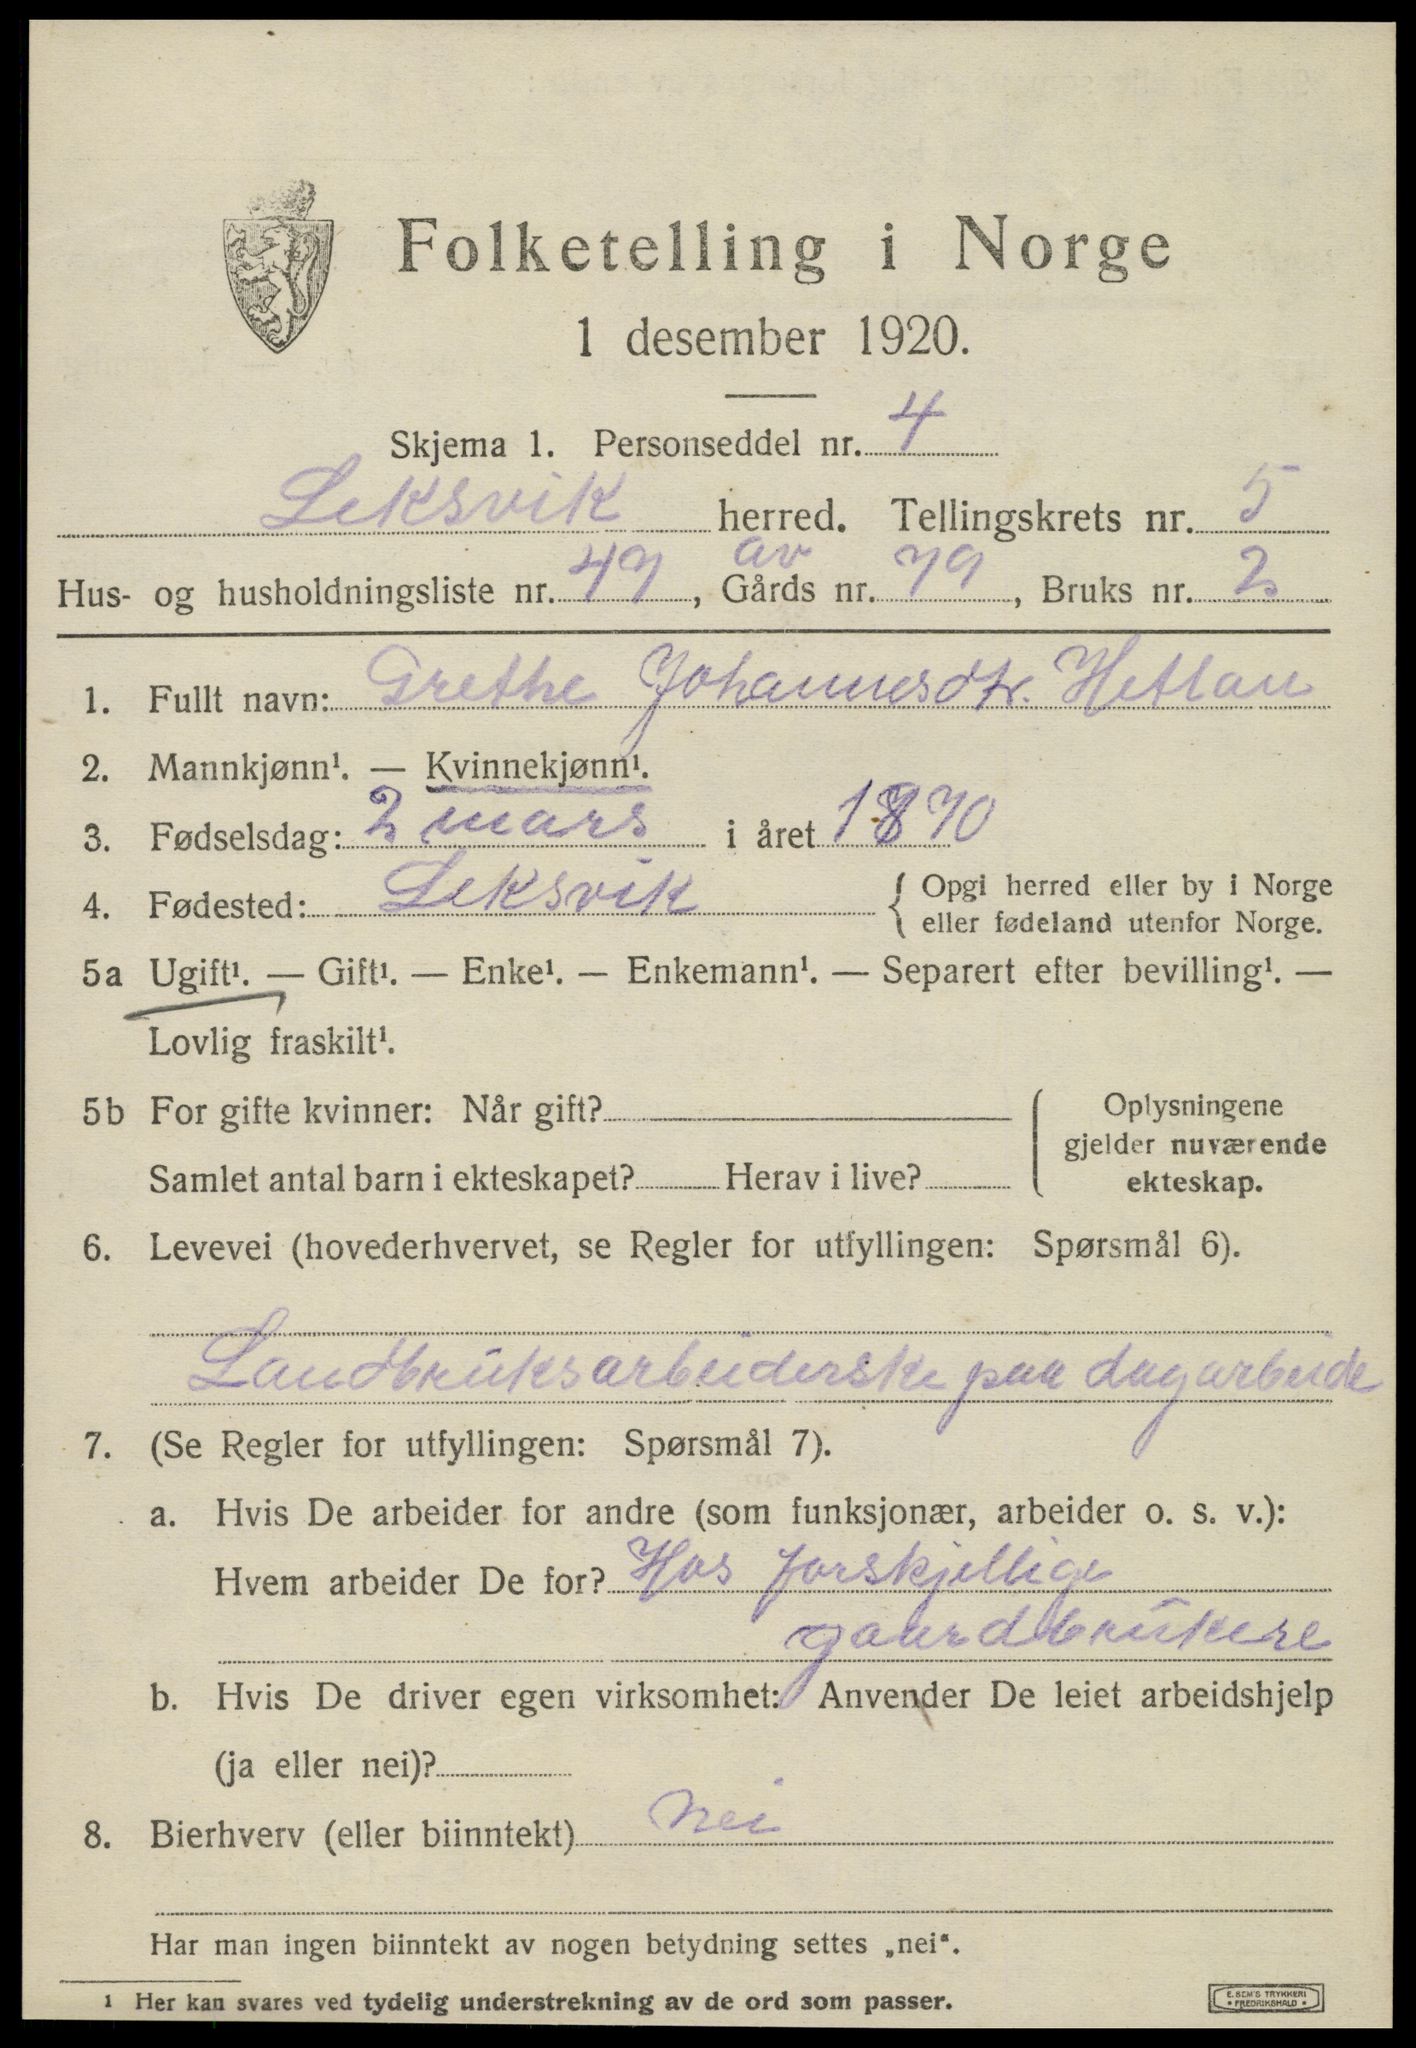 Folketelling i Norge
1 desember 1920.
Skjema 1. Personseddel nr. 4
Leksvik herred. Tellingskrets nr. 5
Hus- og husholdningsliste nr. 47, av Gårds nr. 79, Bruks nr. 2
1. Fullt navn: Grethe Johannesdtr. Hetlan
2. Mannkjønn¹. — Kvinnekjønn¹.
3. Fødselsdag: 2 mars i året 1870
4. Fødested: Leksvik { Opgi herred eller by i Norge
eller fødeland utenfor Norge.
5a Ugift¹. — Gift¹. — Enke¹. — Enkemann¹. — Separert efter bevilling¹. —
Lovlig fraskilt¹.
5b For gifte kvinner: Når gift?
Samlet antal barn i ekteskapet? Herav i live?
Oplysningene
gjelder nuværende
ekteskap.
6. Levevei (hovederhvervet, se Regler for utfyllingen: Spørsmål 6).
Landbruksarbeiderske paa dagarbeide
7. (Se Regler for utfyllingen: Spørsmål 7).
a. Hvis De arbeider for andre (som funksjonær, arbeider o. s. v.):
Hvem arbeider De for? Hos forskjellige
gaardbrukere
b. Hvis De driver egen virksomhet: Anvender De leiet arbeidshjelp
(ja eller nei)?
8. Bierhverv (eller biinntekt) Nei
Har man ingen biinntekt av nogen betydning settes „nei“.
1 Her kan svares ved tydelig understrekning av de ord som passer.
E. SEM'S TRYKKERI
* FREDRIKSHALD *